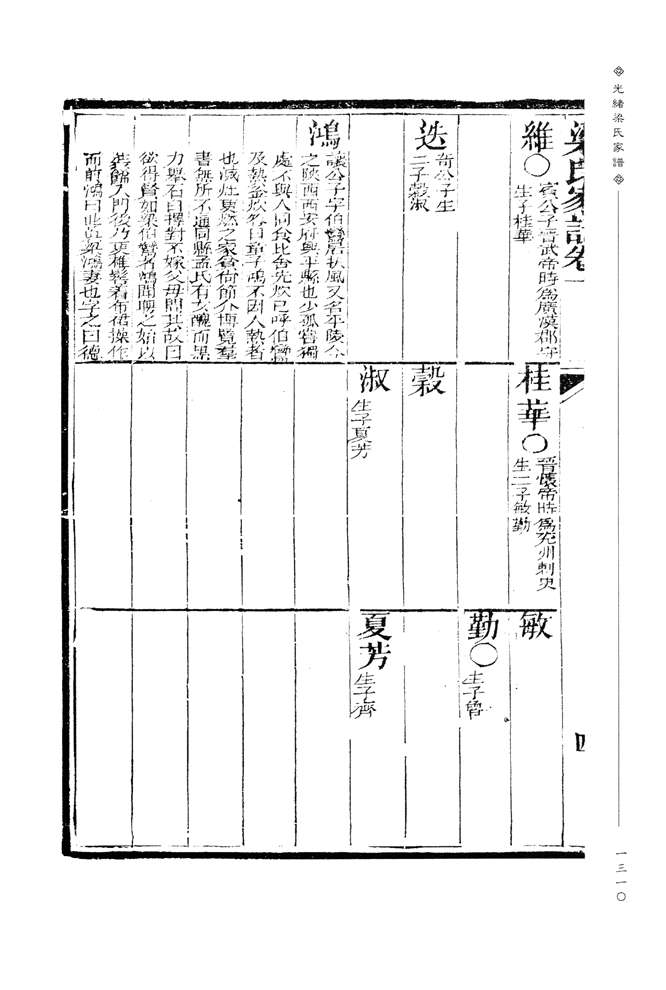 光緒梁氏家譜
一三一〇
梁氏家譜卷一
四
維〇
賓公子晉武帝時爲廣漢郡守
生子桂華
迭
奇公子生
二子縠淑
鴻
讓公子字伯鸞居扶風又名平陵今
之陝西西安府興平縣也少孤嘗獨
處不與人同食比舍先炊已呼伯鸞
及熱釜炊名曰童子鴻不因人熱者
也滅灶更燃之家貧尚節介博覽羣
書無所不通同縣孟氏有女醜而黑
力舉石臼擇對不嫁父母問其故曰
欲得賢如梁伯鸞者鴻聞聘之始以
裝飾入門後乃更椎髻着布裙操作
而前鴻曰此真梁鴻妻也字之曰德
桂華〇
晉懷帝時爲兗州刺史
生二子敏勤
縠
淑
生子夏芳
敏
勤〇
生子曾
夏芳
生子齊